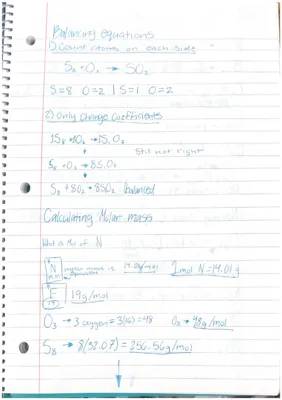 Balancing equations
1) Count atoms on each side
S₈ + O₂ → SO₂
S=8 O=2 | S=1 O=2
2) Only Change Coefficients
Still not right
S₈ + O₂ → 8SO₂
S₈ + 8O₂ → 8SO₂ Balanced
Calculating Molar mass
What is Mm of N
N molar mass is 14.01g/mol 1 mol N = 14.01 g
F 19g/mol
19
O₃ → 3 oxygen = 3(16) = 48 O₃ → 48g/mol
S₈ → 8(32.07) = 256.56g/mol